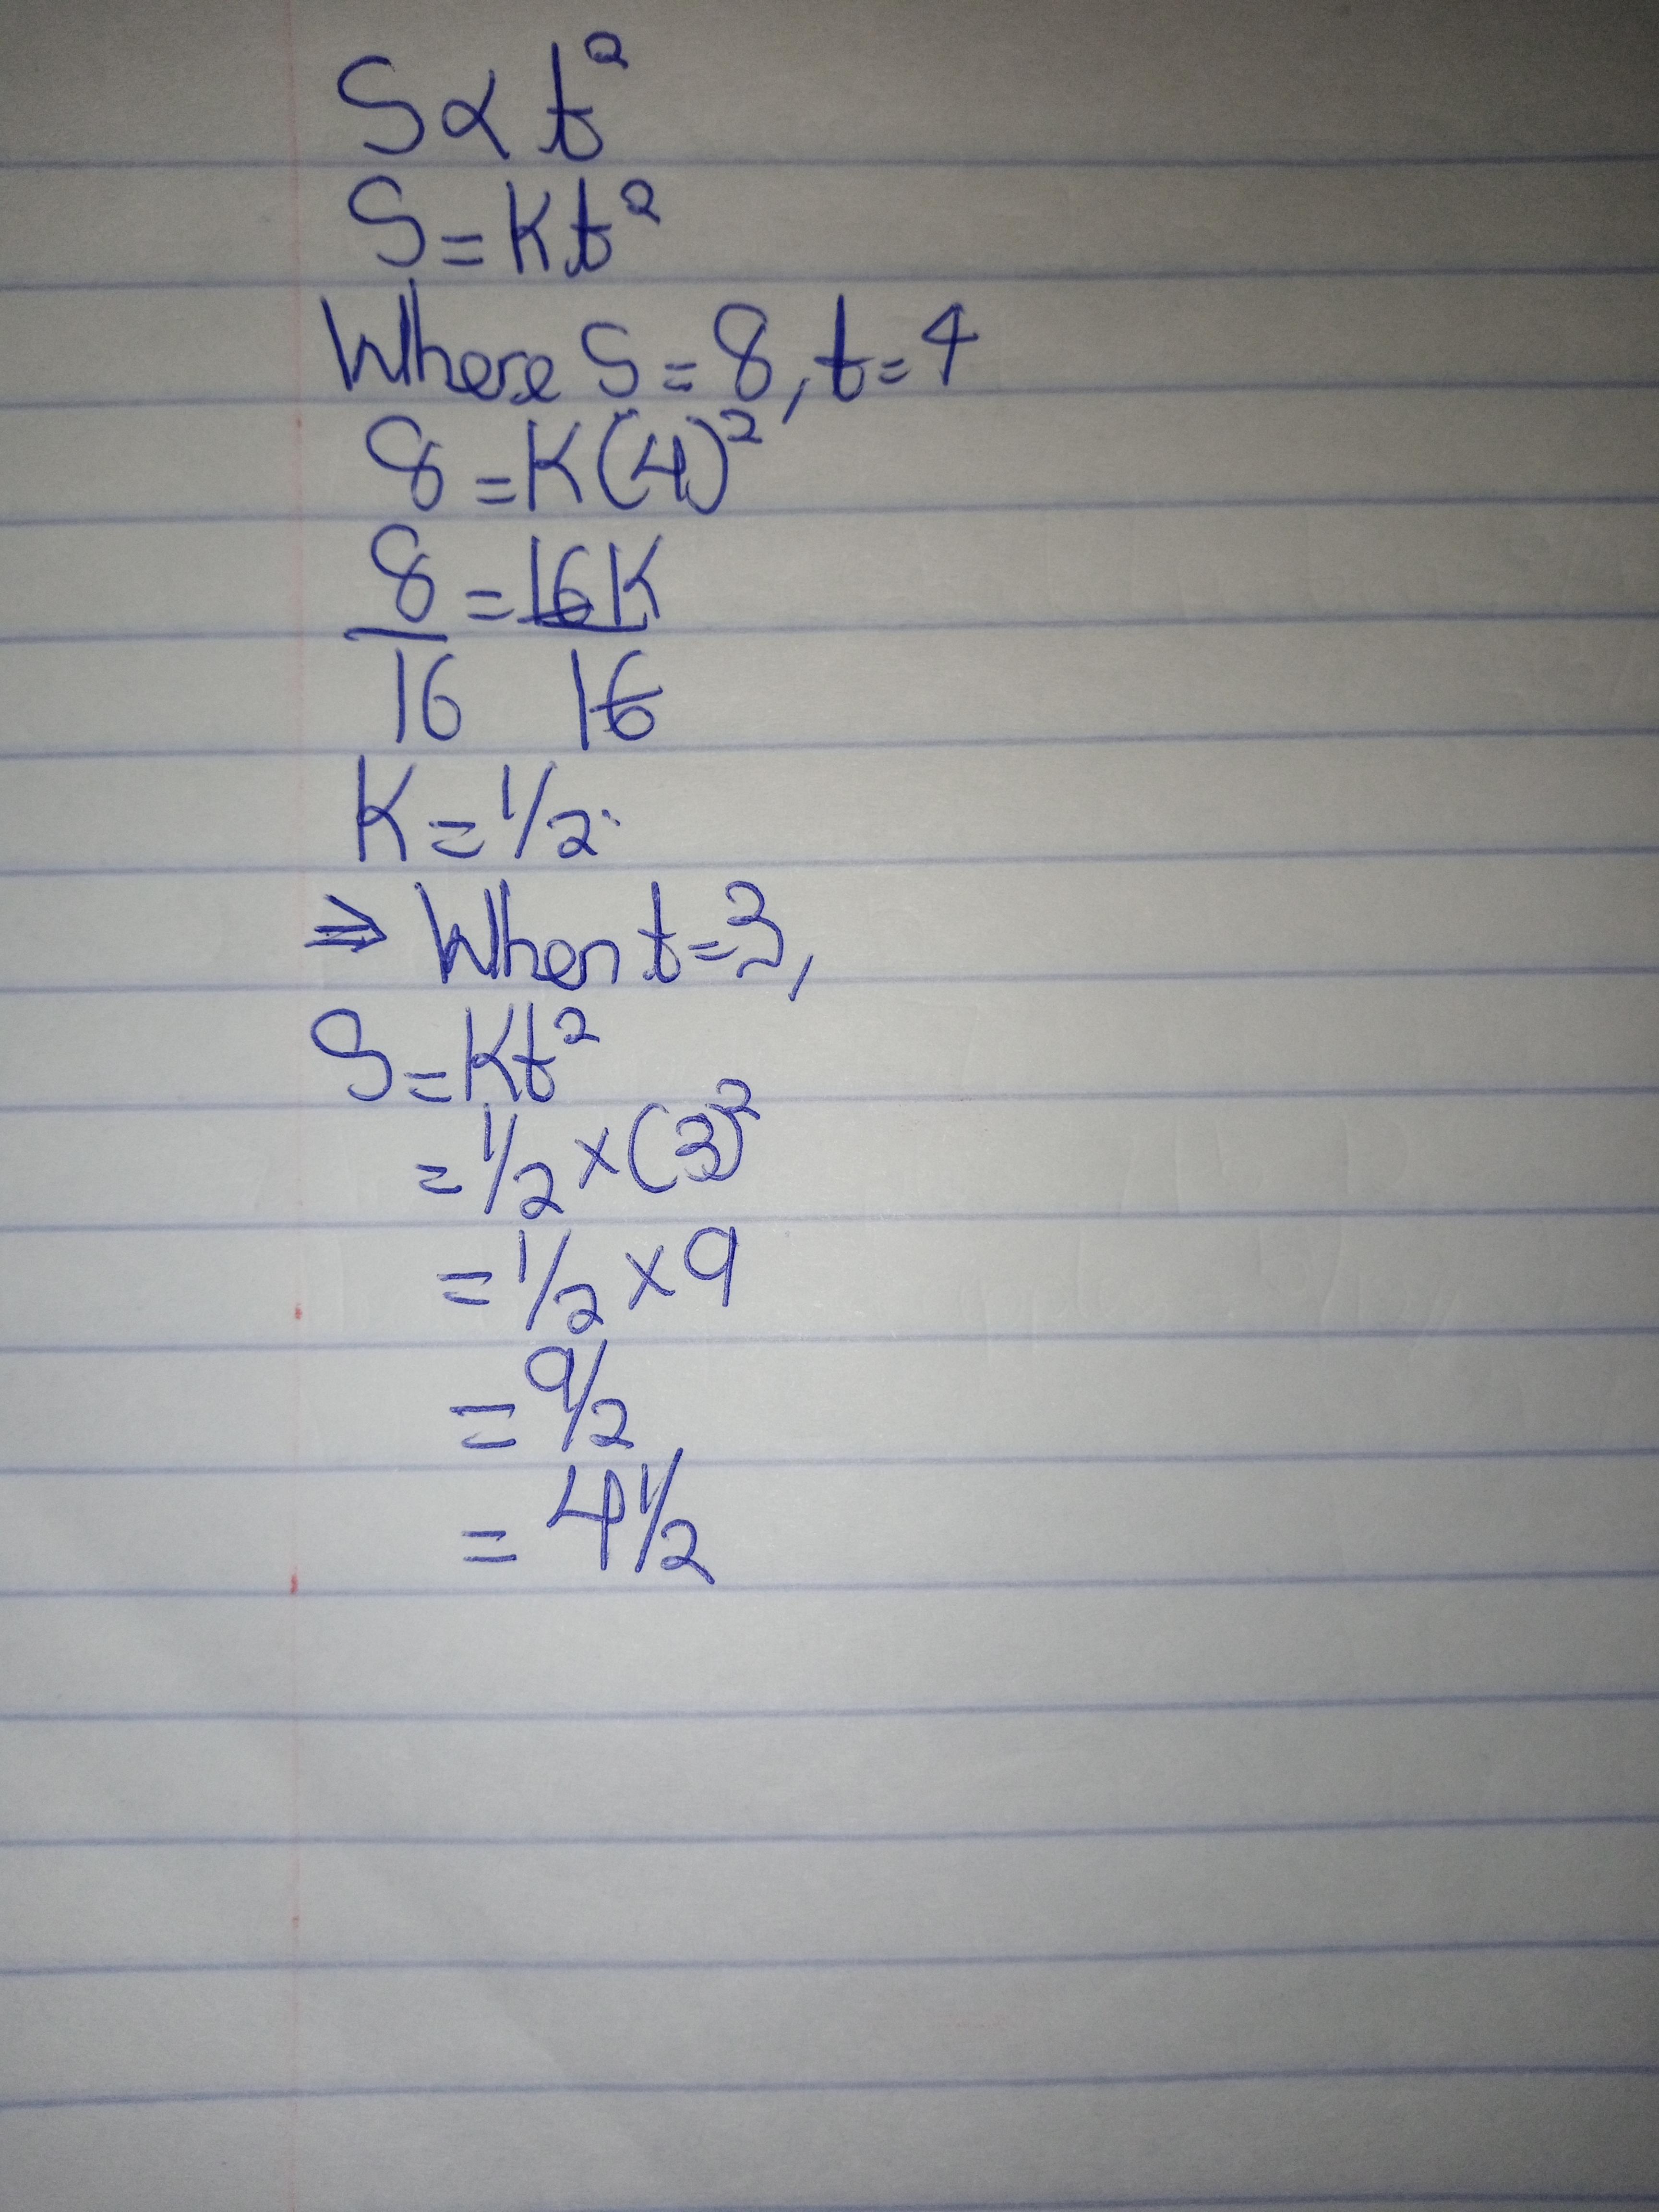 S∝ t²
S=Kt²
Where S=8, t=4
8=K(4)²
8=16K
16 16
K=1/2
⇒ When t=3,
S=Kt²
=1/2×(3)²
=1/2×9
=9/2
=4 1/2